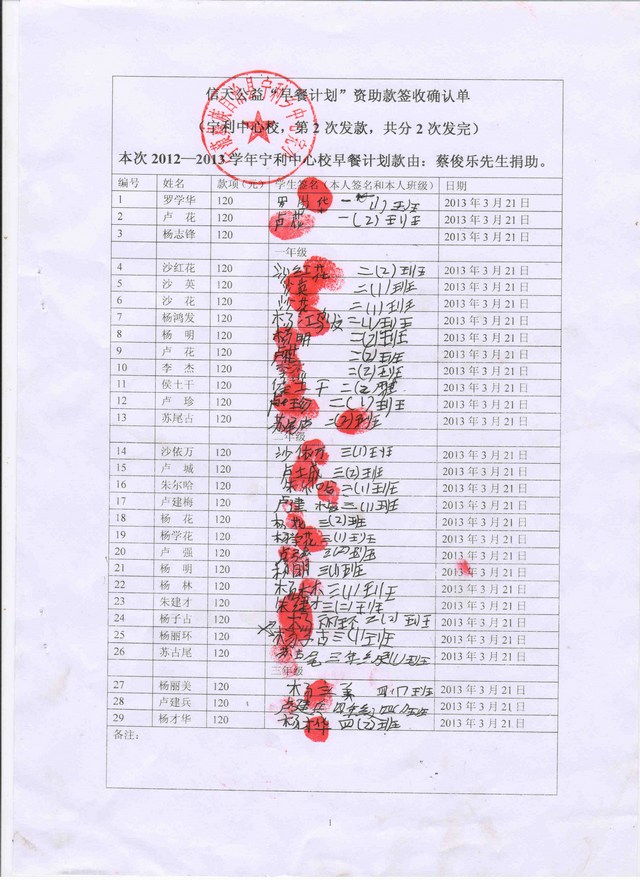 信天公益“早餐计划”资助款签收确认单
（宁利中心校，第2次发款，共分2次发完）
本次2012—2013学年宁利中心校早餐计划款由：蔡俊乐先生捐助。
编号 姓名 款项（元） 学生签名（本人签名和本人班级） 日期
1 罗学华 120 一(1)班 2013年3月21日
2 卢 花 120 卢花 一(2)班 2013年3月21日
3 杨志锋 120 2013年3月21日
一年级
4 沙红花 120 沙红花 二(2)班 2013年3月21日
5 沙 英 120 沙英 二(1)班 2013年3月21日
6 沙 花 120 沙花 二(1)班 2013年3月21日
7 杨鸿发 120 杨江鸟发 二(1)班 2013年3月21日
8 杨 明 120 杨明 二(2)班 2013年3月21日
9 卢 花 120 二(2)班 2013年3月21日
10 李 杰 120 二(2)班 2013年3月21日
11 侯土干 120 土干 二(2)班 2013年3月21日
12 卢 珍 120 二(1)班 2013年3月21日
13 苏尾古 120 二(2)班 2013年3月21日
二年级
14 沙依万 120 沙依万 三(1)班 2013年3月21日
15 卢 城 120 卢城 三(2)班 2013年3月21日
16 朱尔哈 120 2013年3月21日
17 卢建梅 120 卢建 2013年3月21日
18 杨 花 120 杨花 三(2)班 2013年3月21日
19 杨学花 120 杨学花 三(1)班 2013年3月21日
20 卢 强 120 三(2)班 2013年3月21日
21 杨 明 120 杨明 三(1)班 2013年3月21日
22 杨 林 120 杨林 三(1)班 2013年3月21日
23 朱建才 120 朱建才 三(二)班 2013年3月21日
24 杨子古 120 2013年3月21日
25 杨丽环 120 三(1)班 2013年3月21日
26 苏古尾 120 三年级(1)班 2013年3月21日
三年级
27 杨丽美 120 杨三美 四(1)班 2013年3月21日
28 卢建兵 120 卢建兵 2013年3月21日
29 杨才华 120 杨才华 四(2)班 2013年3月21日
备注：
1